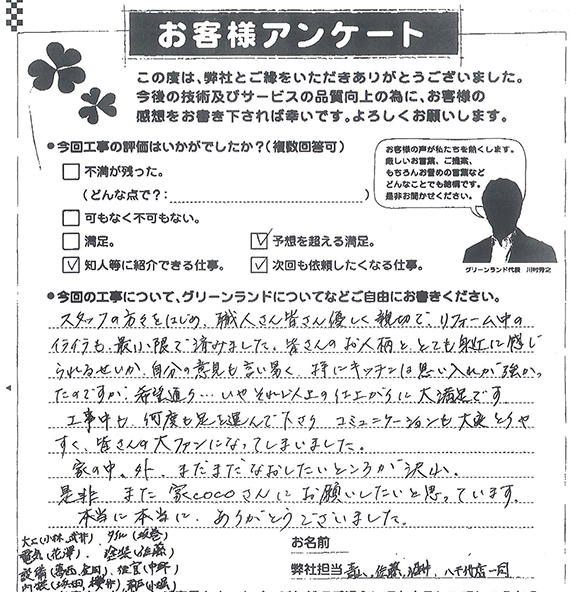 お客様アンケート
この度は、弊社とご縁をいただきありがとうございました。
今後の技術及びサービスの品質向上の為に、お客様の
感想をお書き下されば幸いです。よろしくお願いします。
●今回工事の評価はいかがでしたか?(複数回答可)
不満が残った。
(どんな点で?: )
可もなく不可もない。
満足。 予想を超える満足。
知人等に紹介できる仕事。 次回も依頼したくなる仕事。
お客様の声が私たちを熱くします。
厳しいお言葉、ご提案、
もちろんお誉めの言葉など
どんなことでも結構です。
是非お聞かせください。
グリーンランド代表 川村秀之
●今回の工事について、グリーンランドについてなどご自由にお書きください。
スタッフの方々をはじめ、職人さん皆さん優しく親切で、リフォーム中の
イライラも最小限で済みました。皆さんのお人柄と、とても身近に感じ
られるせいか、自分の意見も言い易く 特にキッチンは思い入れが強かっ
たのですが、希望通り…いやそれ以上の仕上がりに大満足です。
工事中も何度も足を運んで下さり コミュニケーションも大変とりや
すく、皆さんの大ファンになってしまいました。
家の中、外、まだまだなおしたいところが沢山。
是非 また 家cocoさんに お願いしたいと思っています。
本当に本当に、ありがとうございました。
大工(小林、武井) タイル(坂巻)
電気(花澤)、塗装(佐藤)
設備(葛西、金岡)、左官(中野)
お名前
弊社担当 佐藤、酒井 八千代店一同